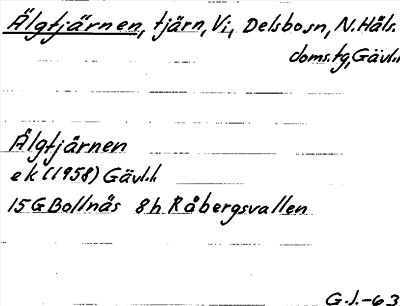 Älgtjärnen, tjärn, Vi, Delsbo sn, N. Häls.
doms.tg, Gävl.l.
Älgtjärnen
ek (1958) Gävl.l.
15G Bollnäs 8h Råbergsvallen
G.J.-63